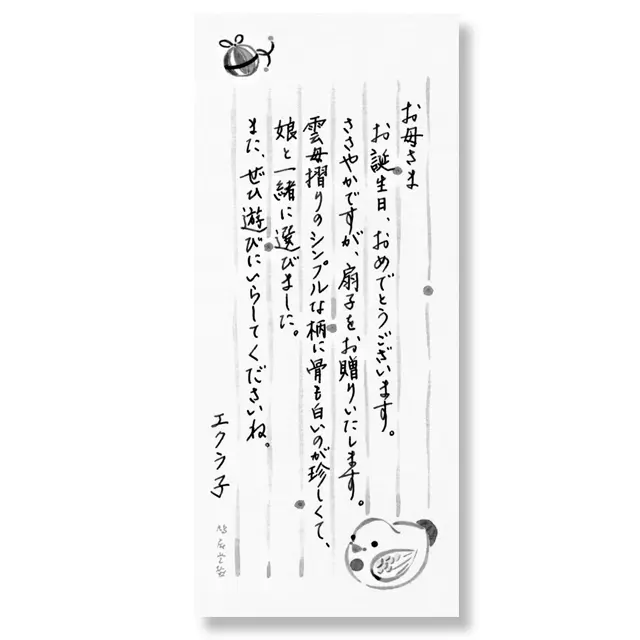 お母さま
お誕生日、おめでとうございます。
ささやかですが、扇子をお贈りいたします。
雲母摺りのシンプルな柄に骨も白いのが珍しくて、
娘と一緒に選びました。
また、ぜひ遊びにいらしてくださいね。
エクラ子